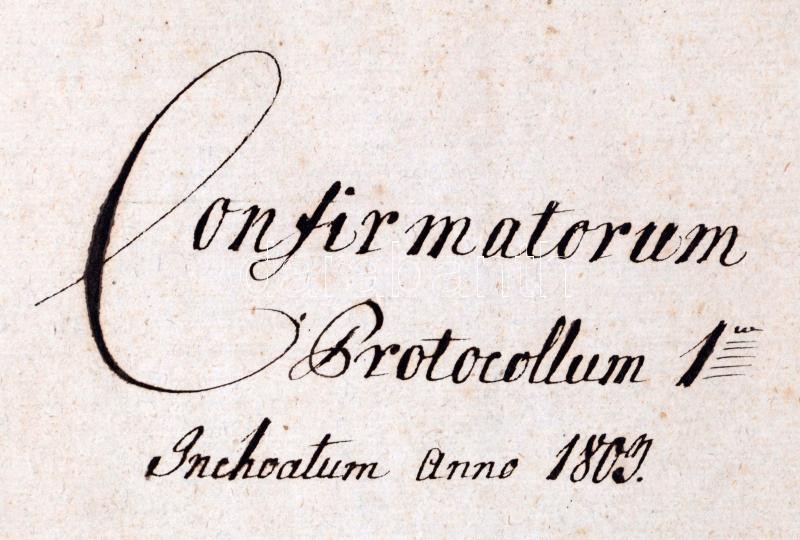 Confirmatorum
Protocollum 1um
Inchoatum Anno 1803.